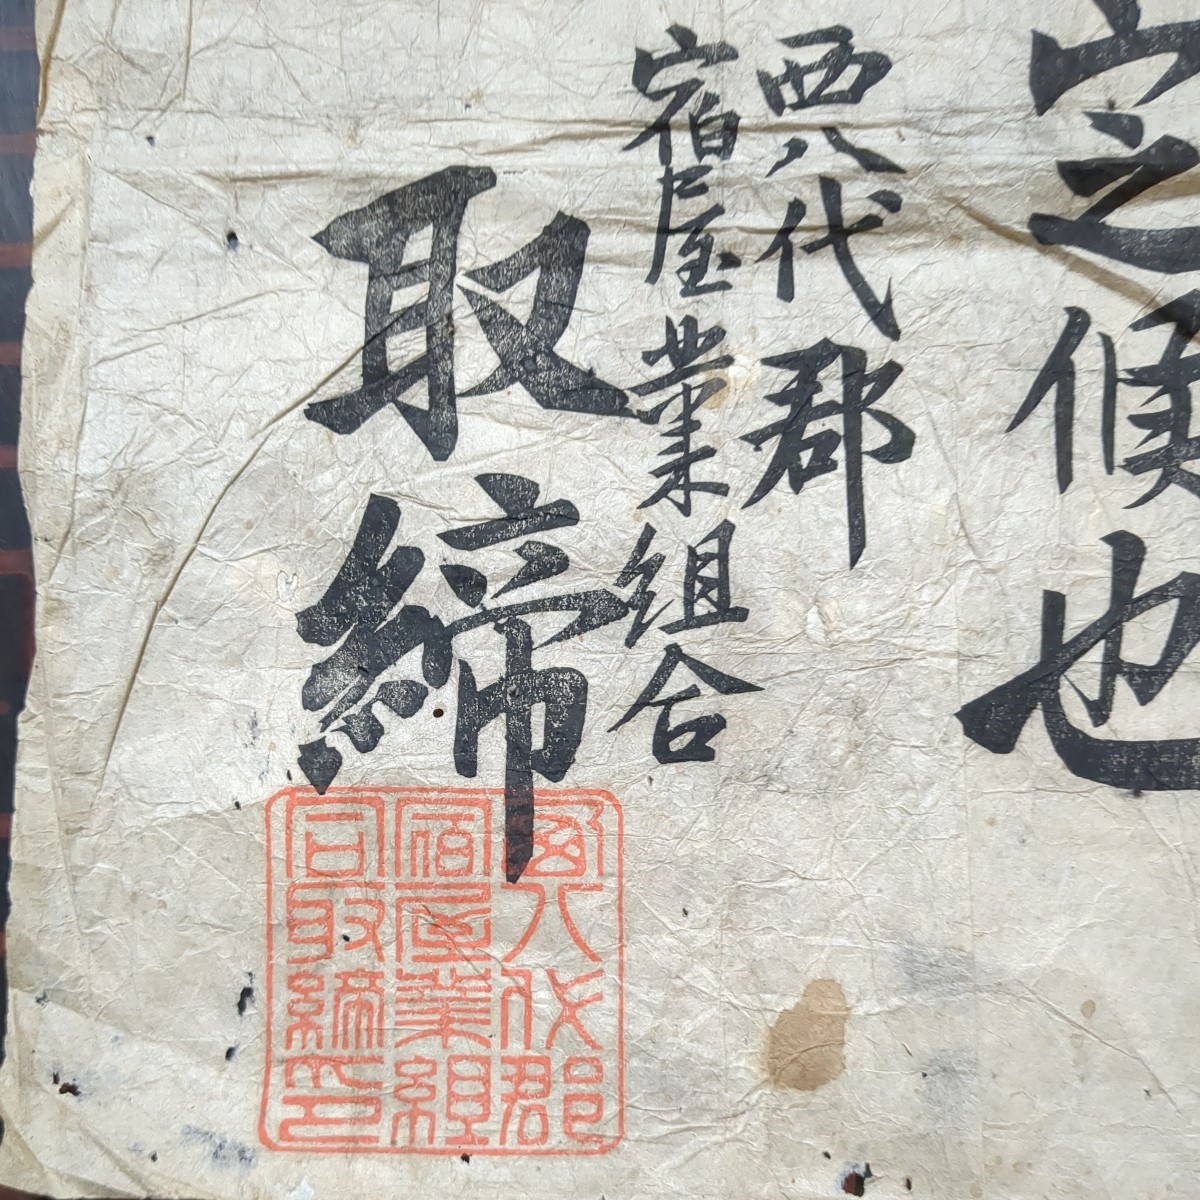 定之候也
西八代郡
宿屋業組合
取締
西八代郡
宿屋業組
合取締印